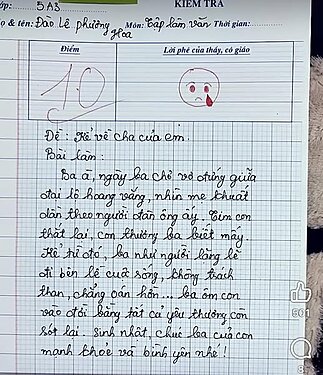 ớp: 5A3 KIỂM TRA
ọ & tên: Đào Lê Phương Hoa Môn: Tập làm văn Thời gian:
Điểm Lời phê của thầy, cô giáo
10
Đề: Kể về cha của em.
Bài làm:
Ba à, ngày ba chở vờ đứng giữa
đại lộ hoang vắng, nhìn mẹ khuất
dần theo người đàn ông ấy. Tim con
thắt lại, con thương ba biết mấy.
Kể từ đó, ba như người lặng lẽ
đi bên lề cuộc sống, không trách
than, chẳng oán hờn... ba ôm con
vào đời bằng tất cả yêu thương còn
sót lại. Sinh nhật, chúc ba của con
mạnh khỏe và bình yên nhé!
501